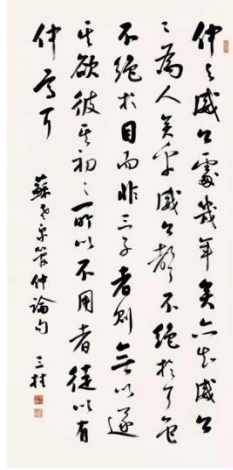 仲与威公處幾年矣亦知威公
之為人矣乎威公聲不絕於耳色
不絕於目而非三子者則無以遂
其欲彼其初之所以不用者徒以有
仲焉耳
蘇老泉管仲論句 三桂